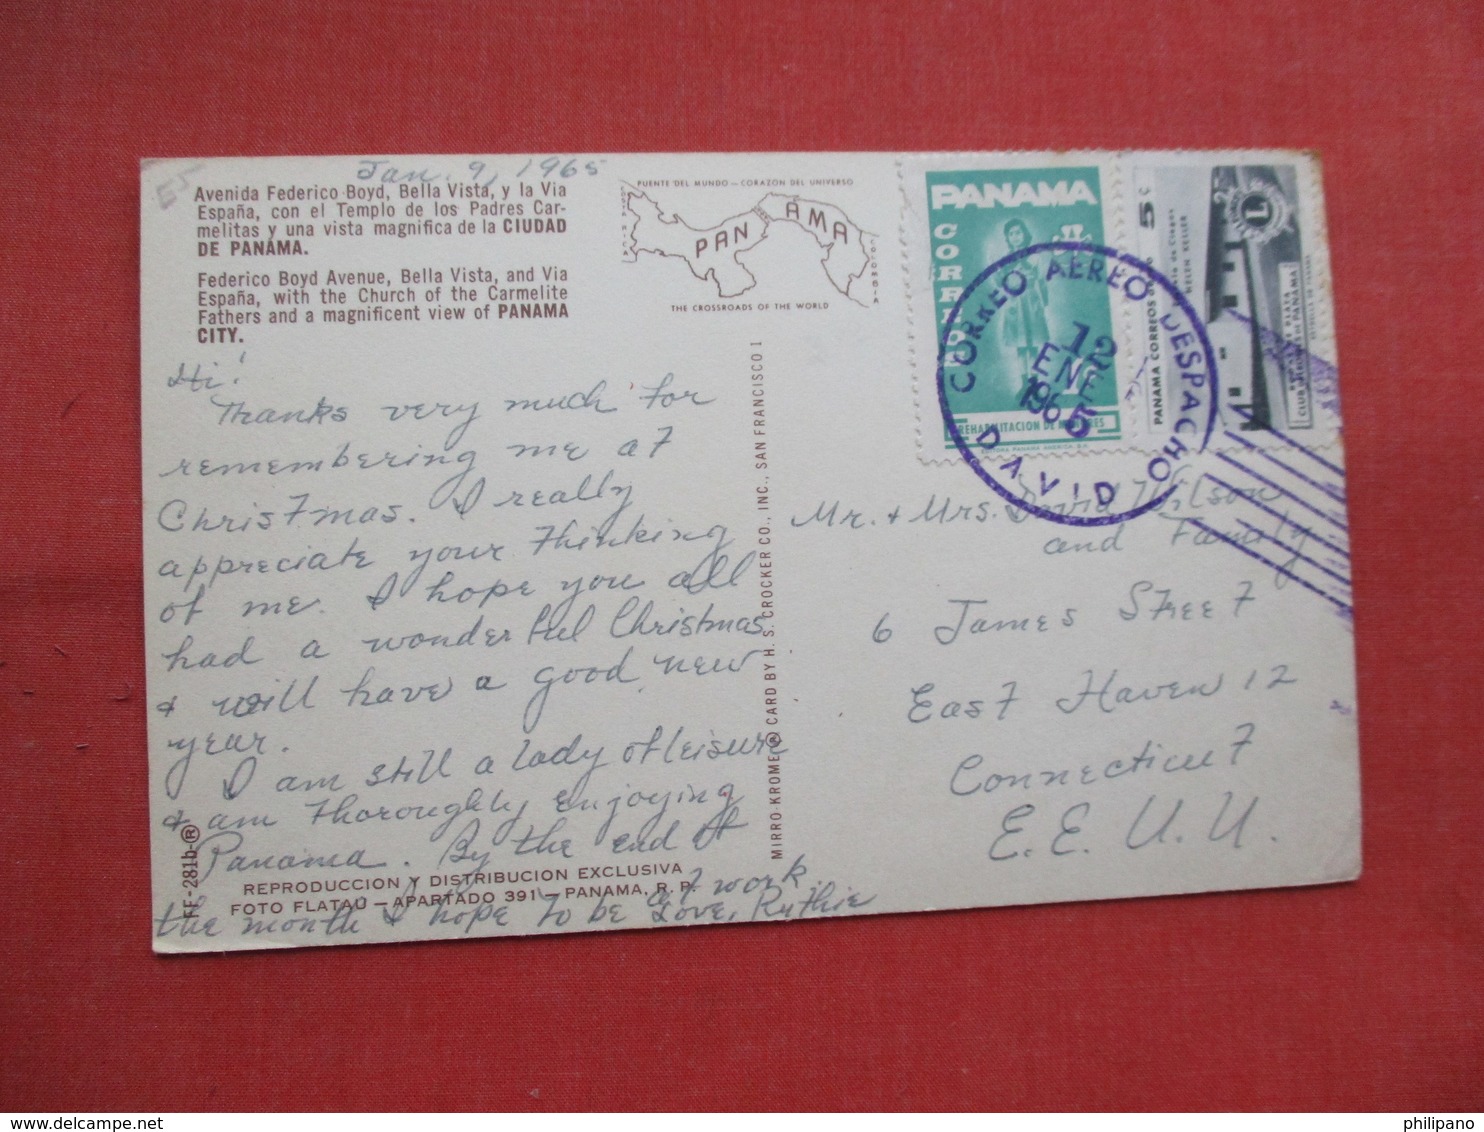 Jan. 9, 1965
55
Avenida Federico Boyd, Bella Vista, y la Via
España, con el Templo de los Padres Car-
melitas y una vista magnifica de la CIUDAD
DE PANAMA.
Federico Boyd Avenue, Bella Vista, and Via
España, with the Church of the Carmelite
Fathers and a magnificent view of PANAMA
CITY.
PUENTE DEL MUNDO — CORAZON DEL UNIVERSO
COSTA RICA
PANAMA
COLOMBIA
THE CROSSROADS OF THE WORLD
Hi!
Thanks very much for
remembering me at
Christmas. I really
appreciate your thinking
of me. I hope you all
had a wonderful Christmas
& will have a good new
year.
I am still a lady of leisure
& am thoroughly enjoying
Panama. By the end of
the month I hope to be at work.
Love, Ruthie
FF-281b-®
REPRODUCCION Y DISTRIBUCION EXCLUSIVA
FOTO FLATAU — APARTADO 391 — PANAMA, R. P.
MIRRO-KROME® CARD BY H. S. CROCKER CO., INC., SAN FRANCISCO 1
PANAMA
CORREO
REHABILITACION DE MENORES
EDITORA PANAMA AMERICA, S.A.
5c
PANAMA CORREOS
HELEN KELLER
L
CORREO AEREO DESPACHO
12
ENE
1965
DAVID
Mr. & Mrs. David Wilson
and Family
6 James Street
East Haven 12
Connecticut
E.E.U.U.
philipano
www.delcampe.net